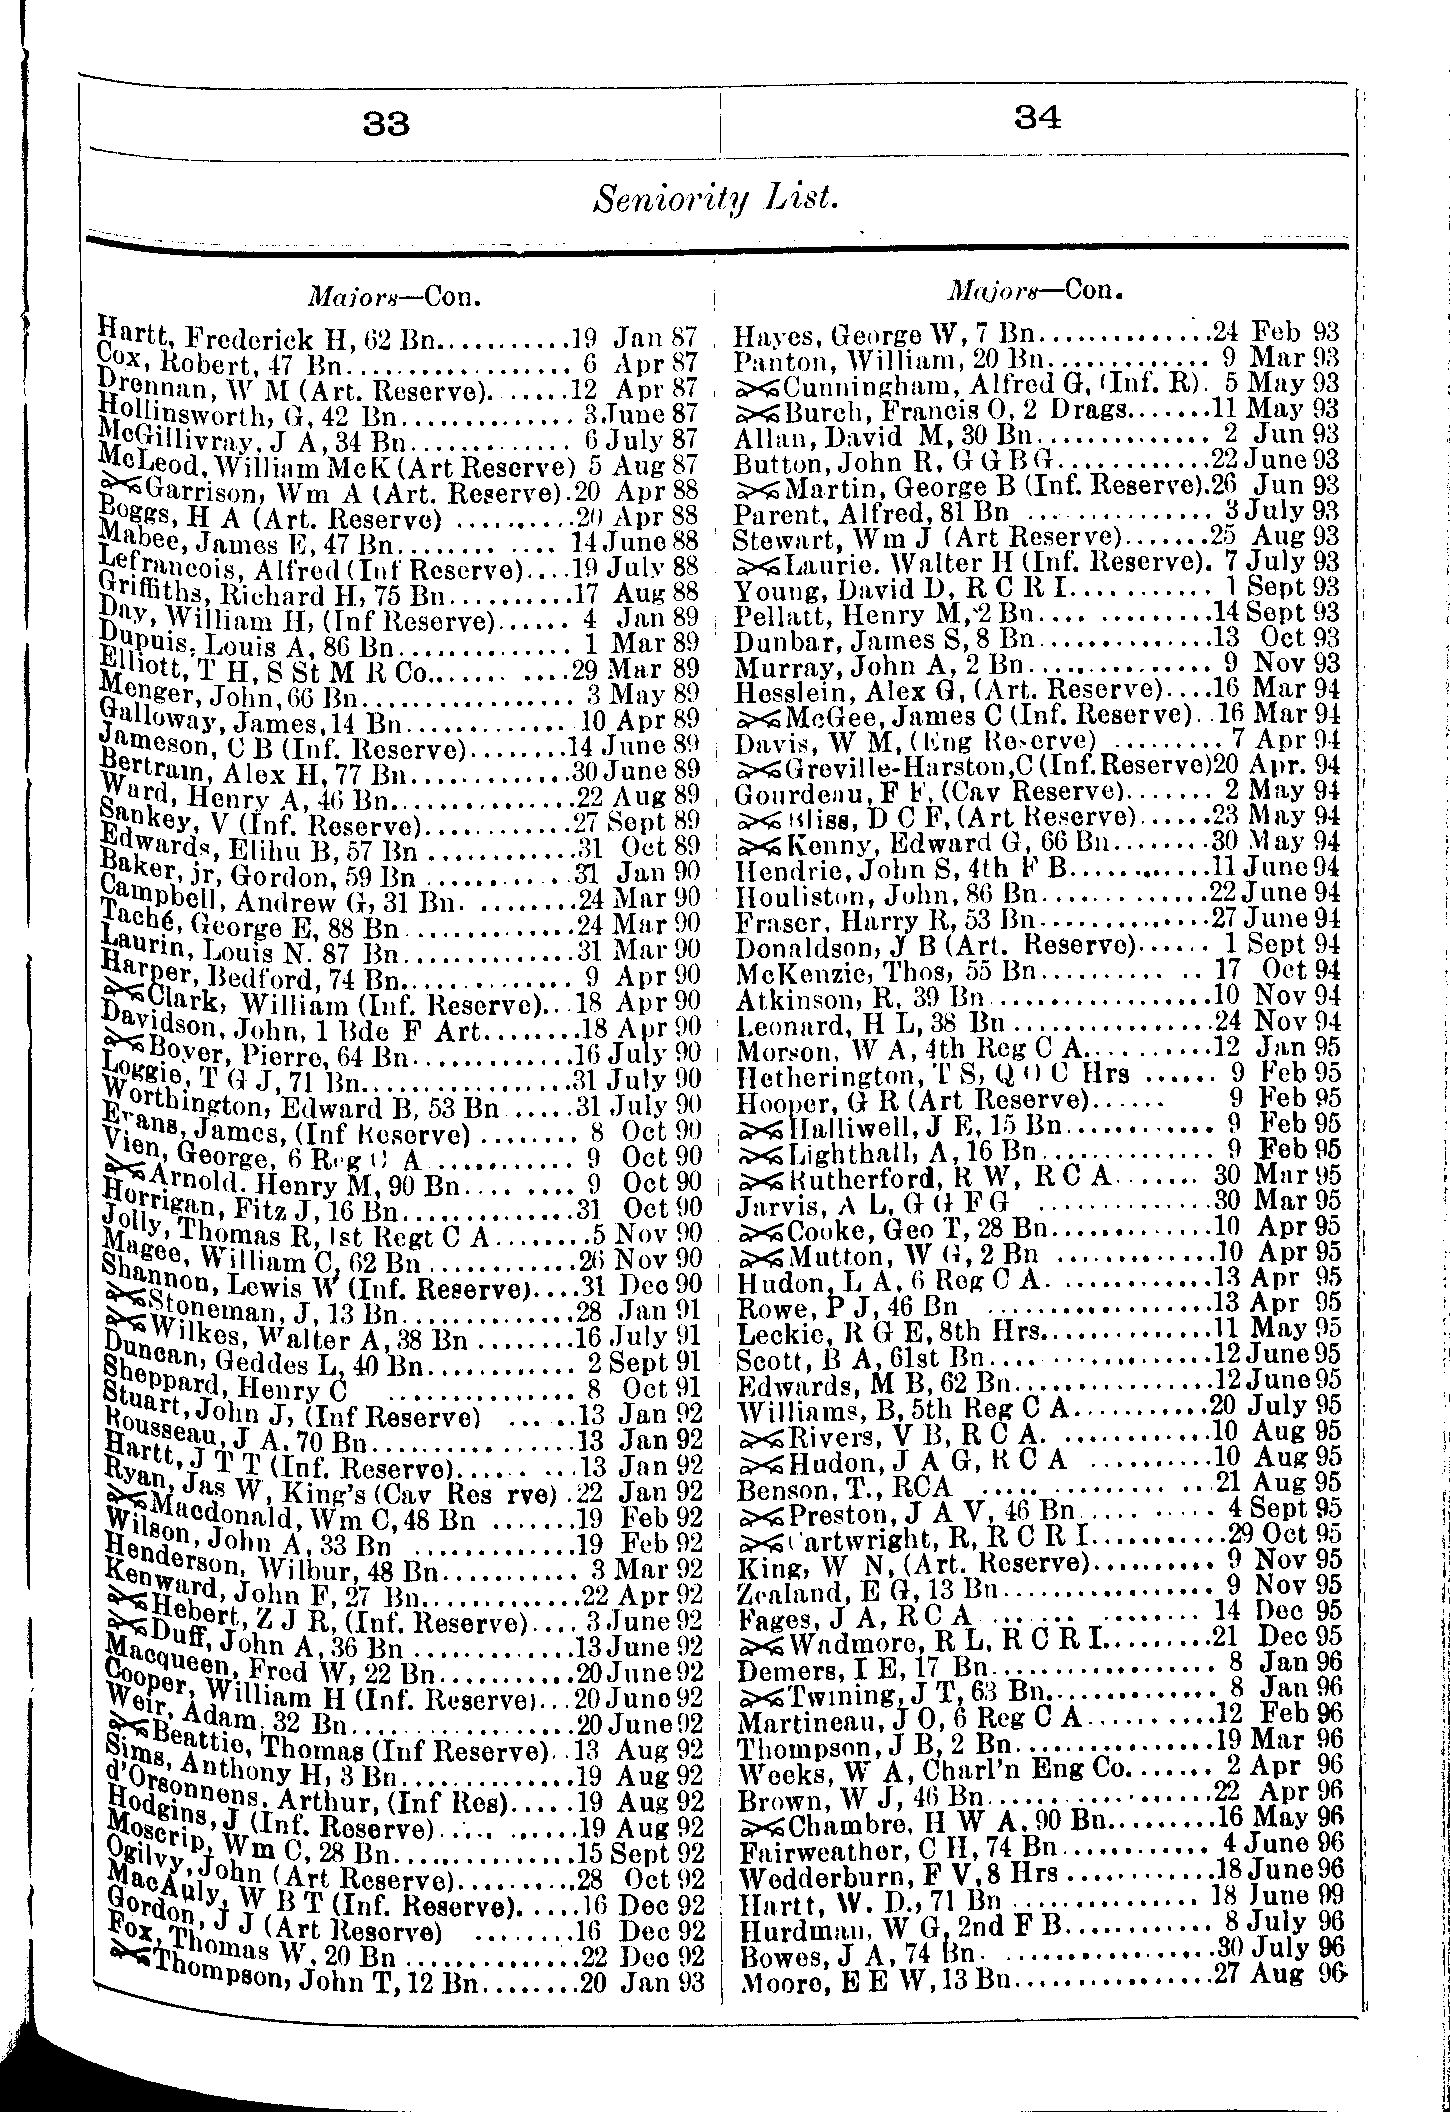 33
34
Seniority List.
Majors—Con.
Hartt, Frederick H, 62 Bn...........19 Jan 87
Cox, Robert, 47 Bn.................. 6 Apr 87
Drennan, W M (Art. Reserve).......12 Apr 87
Hollinsworth, G, 42 Bn.............. 3 June 87
McGillivray, J A, 34 Bn............. 6 July 87
McLeod, William McK (Art Reserve) 5 Aug 87
Garrison, Wm A (Art. Reserve).20 Apr 88
Boggs, H A (Art. Reserve) ..........20 Apr 88
Mabee, James E, 47 Bn........ .... 14 June 88
Lefrancois, Alfred (Inf Reserve)....19 July 88
Griffiths, Richard H, 75 Bn..........17 Aug 88
Day, William H, (Inf Reserve)...... 4 Jan 89
Dupuis, Louis A, 86 Bn.............. 1 Mar 89
Elliott, T H, S St M R Co....... .....29 Mar 89
Menger, John, 66 Bn................. 3 May 89
Galloway, James, 14 Bn............. 10 Apr 89
Jameson, C B (Inf. Reserve)........14 June 89
Bertram, Alex H, 77 Bn.............30 June 89
Ward, Henry A, 46 Bn...............22 Aug 89
Sankey, V (Inf. Reserve)............27 Sept 89
Edwards, Elihu B, 57 Bn ............31 Oct 89
Baker, jr, Gordon, 59 Bn ............31 Jan 90
Campbell, Andrew G, 31 Bn. ........24 Mar 90
Taché, George E, 88 Bn..............24 Mar 90
Laurin, Louis N. 87 Bn..............31 Mar 90
Harper, Bedford, 74 Bn.............. 9 Apr 90
Clark, William (Inf. Reserve)...18 Apr 90
Davidson, John, 1 Bde F Art........18 Apr 90
Boyer, Pierre, 64 Bn.............16 July 90
Loggie, T G J, 71 Bn.................31 July 90
Worthington, Edward B, 53 Bn ......31 July 90
Evans, James, (Inf Reserve) ........ 8 Oct 90
Vien, George, 6 Reg C A ........... 9 Oct 90
Arnold. Henry M, 90 Bn.... ..... 9 Oct 90
Horrigan, Fitz J, 16 Bn..............31 Oct 90
Jolly, Thomas R, 1st Regt C A........5 Nov 90
Magee, William C, 62 Bn ............26 Nov 90
Shannon, Lewis W (Inf. Reserve)....31 Dec 90
Stoneman, J, 13 Bn..............28 Jan 91
Wilkes, Walter A, 38 Bn ........16 July 91
Duncan, Geddes L, 40 Bn............ 2 Sept 91
Sheppard, Henry C .............. 8 Oct 91
Stuart, John J, (Inf Reserve) ... ...13 Jan 92
Rousseau, J A. 70 Bn................13 Jan 92
Hartt, J T T (Inf. Reserve)...... ...13 Jan 92
Ryan, Jas W, King's (Cav Res rve) .22 Jan 92
Macdonald, Wm C, 48 Bn .......19 Feb 92
Wilson, John A, 33 Bn .............19 Feb 92
Henderson, Wilbur, 48 Bn........... 3 Mar 92
Kenward, John F, 27 Bn.............22 Apr 92
Hebert, Z J R, (Inf. Reserve).... 3 June 92
Duff, John A, 36 Bn ..............13 June 92
Macqueen, Fred W, 22 Bn...........20 June 92
Cooper, William H (Inf. Reserve)...20 June 92
Weir, Adam, 32 Bn..................20 June 92
Beattie, Thomas (Inf Reserve)..13 Aug 92
Sims, Anthony H, 3 Bn..............19 Aug 92
d'Orsonnens. Arthur, (Inf Res).....19 Aug 92
Hodgins, J (Inf. Reserve)..... ......19 Aug 92
Moscrip, Wm C, 28 Bn...............15 Sept 92
Ogilvy, John (Art Reserve)..........28 Oct 92
MacAuly, W B T (Inf. Reserve)......16 Dec 92
Gordon, J J (Art Reserve) ........16 Dec 92
Fox, Thomas W, 20 Bn ..............22 Dec 92
Thompson, John T, 12 Bn........20 Jan 93
Majors—Con.
Hayes, George W, 7 Bn..............24 Feb 93
Panton, William, 20 Bn............. 9 Mar 93
Cunningham, Alfred G, (Inf. R). 5 May 93
Burch, Francis O, 2 Drags.......11 May 93
Allan, David M, 30 Bn.............. 2 Jun 93
Button, John R, G G B G............22 June 93
Martin, George B (Inf. Reserve).26 Jun 93
Parent, Alfred, 81 Bn ................ 3 July 93
Stewart, Wm J (Art Reserve).......25 Aug 93
Laurie. Walter H (Inf. Reserve). 7 July 93
Young, David D, R C R I........... 1 Sept 93
Pellatt, Henry M, 2 Bn.... ..........14 Sept 93
Dunbar, James S, 8 Bn..............13 Oct 93
Murray, John A, 2 Bn............... 9 Nov 93
Hesslein, Alex G, (Art. Reserve)....16 Mar 94
McGee, James C (Inf. Reserve)..16 Mar 94
Davis, W M, (Eng Reserve) ......... 7 Apr 94
Greville-Harston, C (Inf. Reserve)20 Apr. 94
Gourdeau, F F, (Cav Reserve)....... 2 May 94
Bliss, D C F, (Art Reserve)......23 May 94
Kenny, Edward G, 66 Bn........30 May 94
Hendrie, John S, 4th F B............11 June 94
Houliston, John, 86 Bn..............22 June 94
Fraser, Harry R, 53 Bn..............27 June 94
Donaldson, J B (Art. Reserve)...... 1 Sept 94
McKenzie, Thos, 55 Bn.......... .. 17 Oct 94
Atkinson, R, 39 Bn..................10 Nov 94
Leonard, H L, 38 Bn ................24 Nov 94
Morson, W A, 4th Reg C A...........12 Jan 95
Hetherington, T S, Q O C Hrs ...... 9 Feb 95
Hooper, G R (Art Reserve)...... 9 Feb 95
Halliwell, J E, 15 Bn............ 9 Feb 95
Lighthall, A, 16 Bn.............. 9 Feb 95
Rutherford, R W, R C A....... 30 Mar 95
Jarvis, A L, G G F G ..............30 Mar 95
Cooke, Geo T, 28 Bn.............10 Apr 95
Mutton, W G, 2 Bn .............10 Apr 95
Hudon, L A, 6 Reg C A. ............13 Apr 95
Rowe, P J, 46 Bn ..................13 Apr 95
Leckie, R G E, 8th Hrs..............11 May 95
Scott, B A, 61st Bn..................12 June 95
Edwards, M B, 62 Bn................12 June 95
Williams, B, 5th Reg C A...........20 July 95
Rivers, V B, R C A. ............10 Aug 95
Hudon, J A G, R C A ..........10 Aug 95
Benson, T., RCA ..... .......... ...21 Aug 95
Preston, J A V, 46 Bn........ ..... 4 Sept 95
artwright, R, R C R I...........29 Oct 95
King, W N, (Art. Reserve).......... 9 Nov 95
Zealand, E G, 13 Bn................. 9 Nov 95
Fages, J A, R C A ...... ......... 14 Dec 95
Wadmore, R L, R C R I.........21 Dec 95
Demers, I E, 17 Bn.................. 8 Jan 96
Twining, J T, 63 Bn............. 8 Jan 96
Martineau, J O, 6 Reg C A..........12 Feb 96
Thompson, J B, 2 Bn................19 Mar 96
Weeks, W A, Charl'n Eng Co....... 2 Apr 96
Brown, W J, 46 Bn..................22 Apr 96
Chambre, H W A, 90 Bn.........16 May 96
Fairweather, C H, 74 Bn............ 4 June 96
Wedderburn, F V, 8 Hrs ...........18 June 96
Hartt, W. D., 71 Bn ............... 18 June 99
Hurdman, W G, 2nd F B............ 8 July 96
Bowes, J A, 74 Bn. .................30 July 96
Moore, E E W, 13 Bn................27 Aug 96